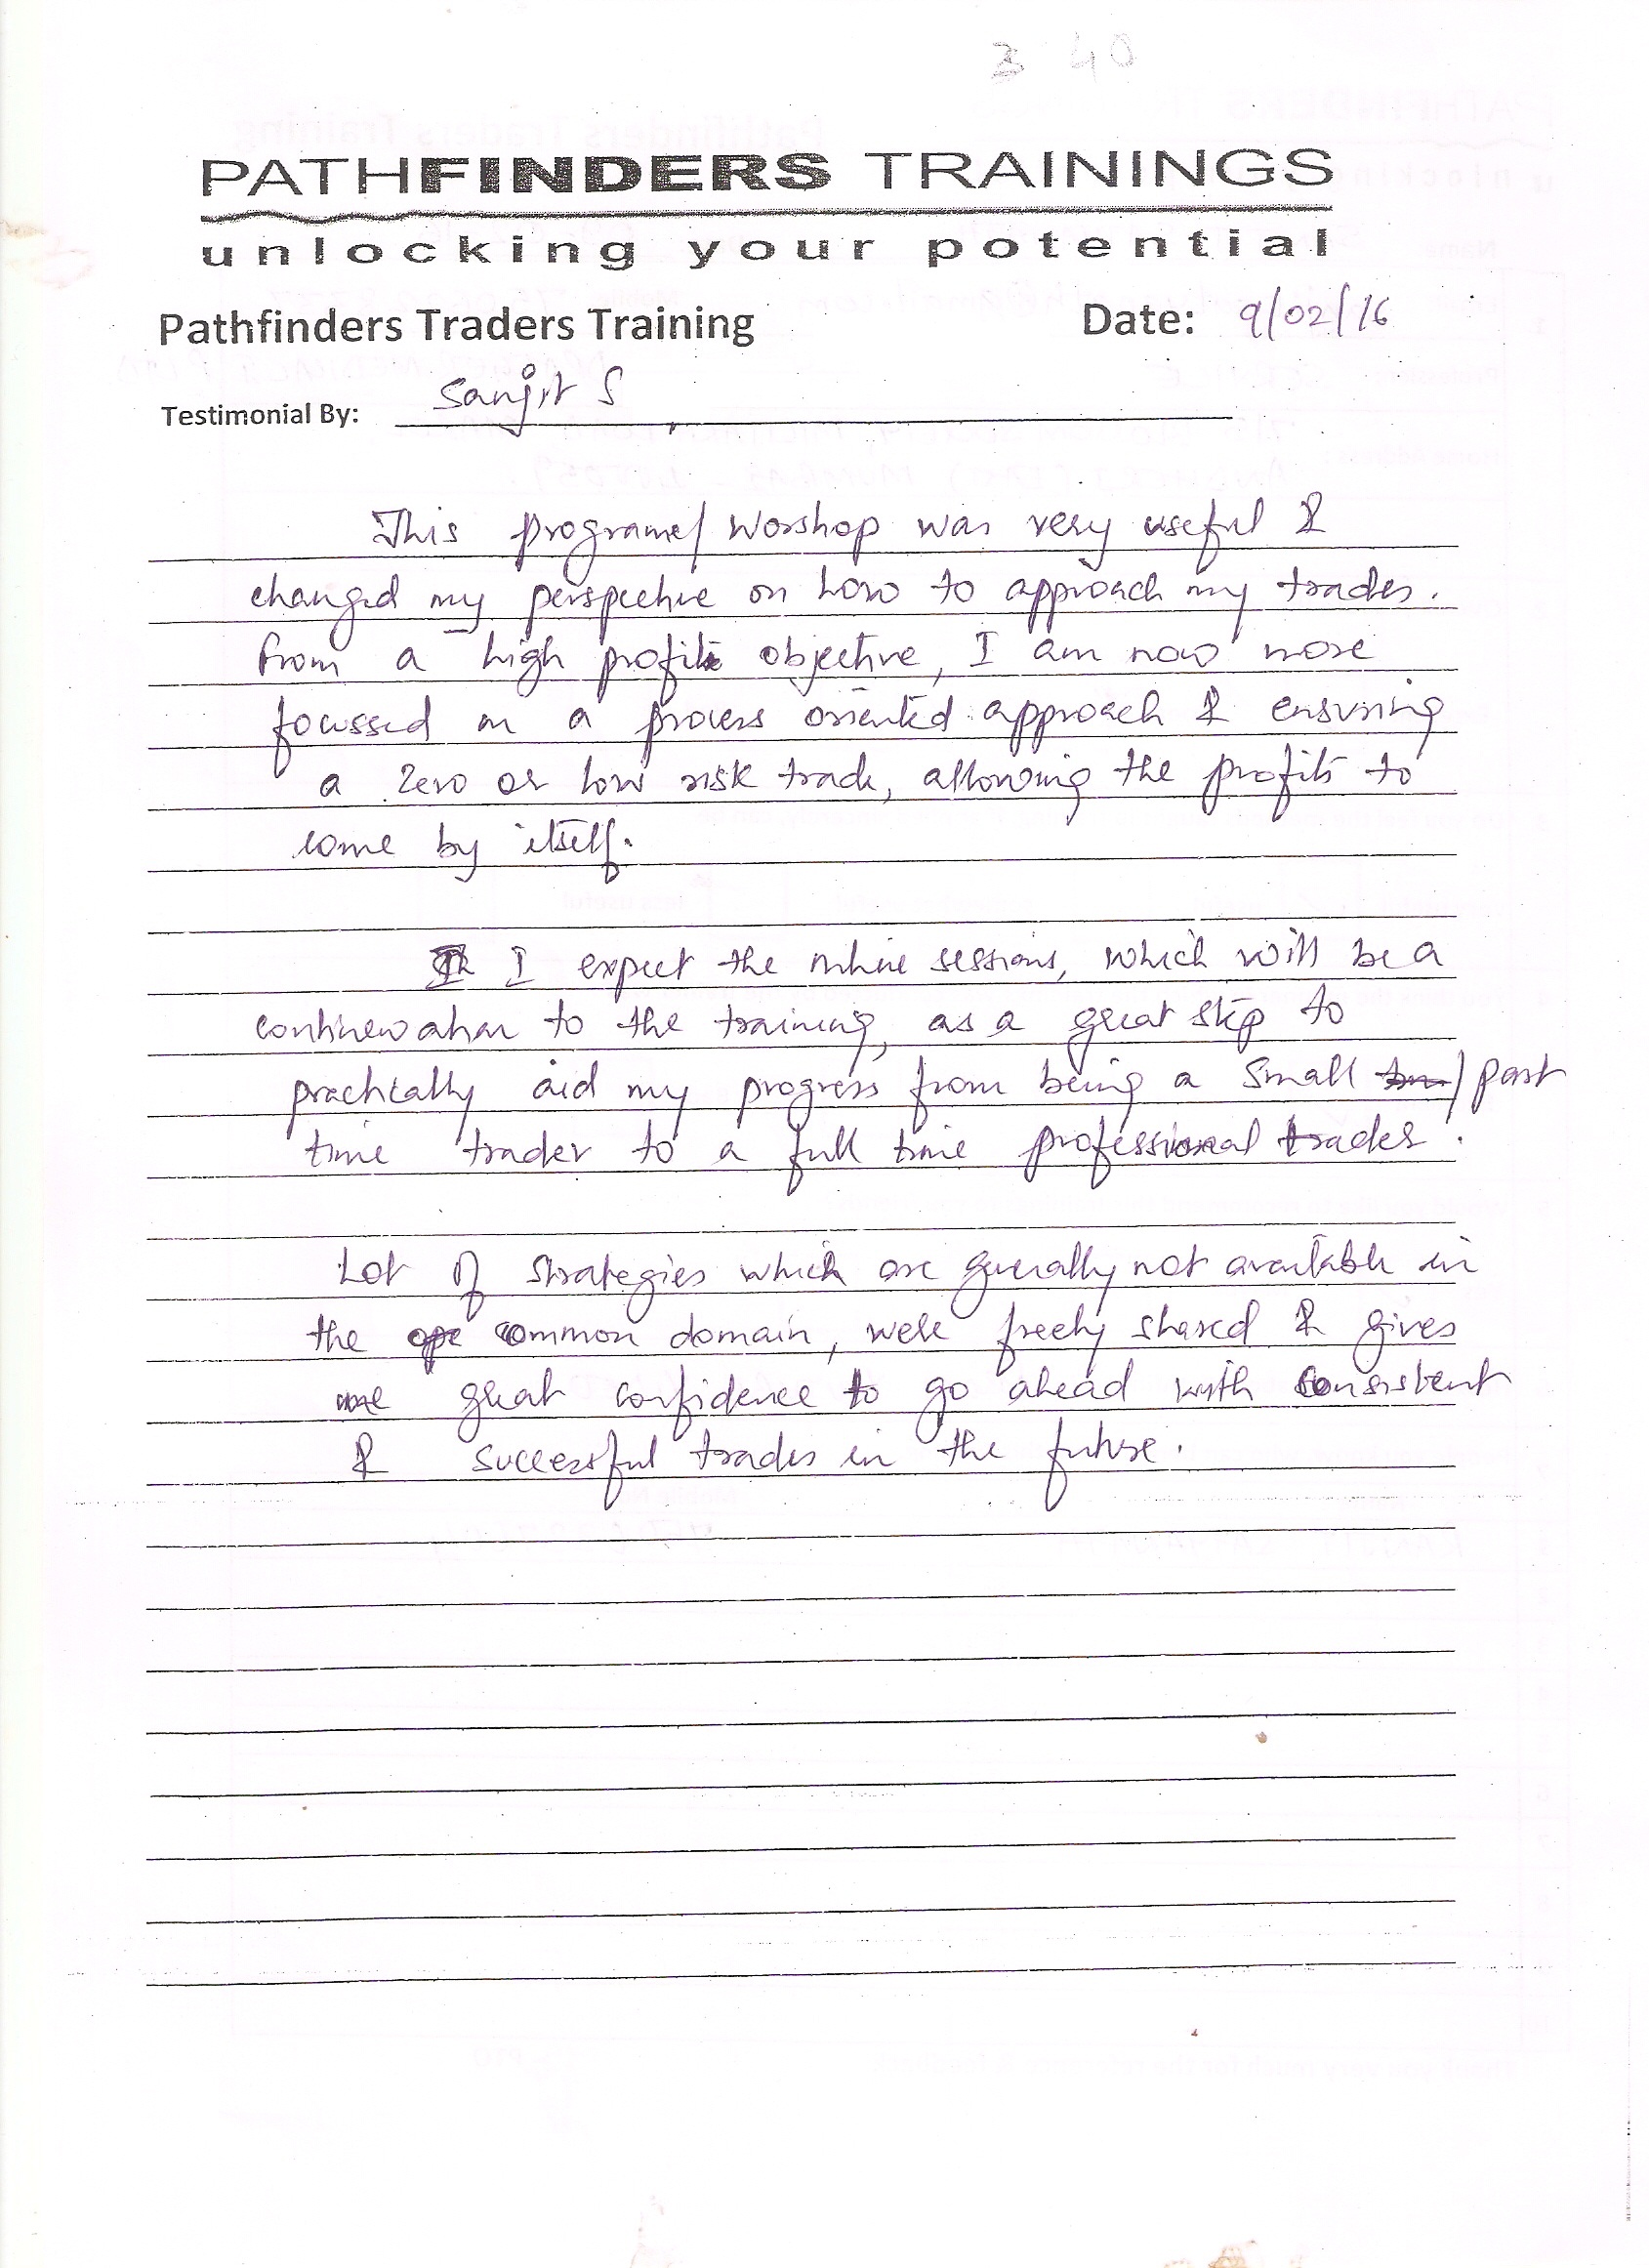 3 40
PATHFINDERS TRAININGS
unlocking your potential
Pathfinders Traders Training Date: 9/02/16
Testimonial By: Sanjit S
This programe/ Worshop was very useful &
changed my perspective on how to approach my trades.
From a high profit objective, I am now more
focussed on a process oriented approach & ensuring
a zero or low risk trade, allowing the profits to
come by itself.
I expect the online sessions, which will be a
continewation to the training, as a great step to
practically aid my progress from being a small / part
time trader to a full time professional trader.
Lot of strategies which are generally not available in
the common domain, were freely shared & gives
me great confidence to go ahead with consistent
& successful trades in the future.